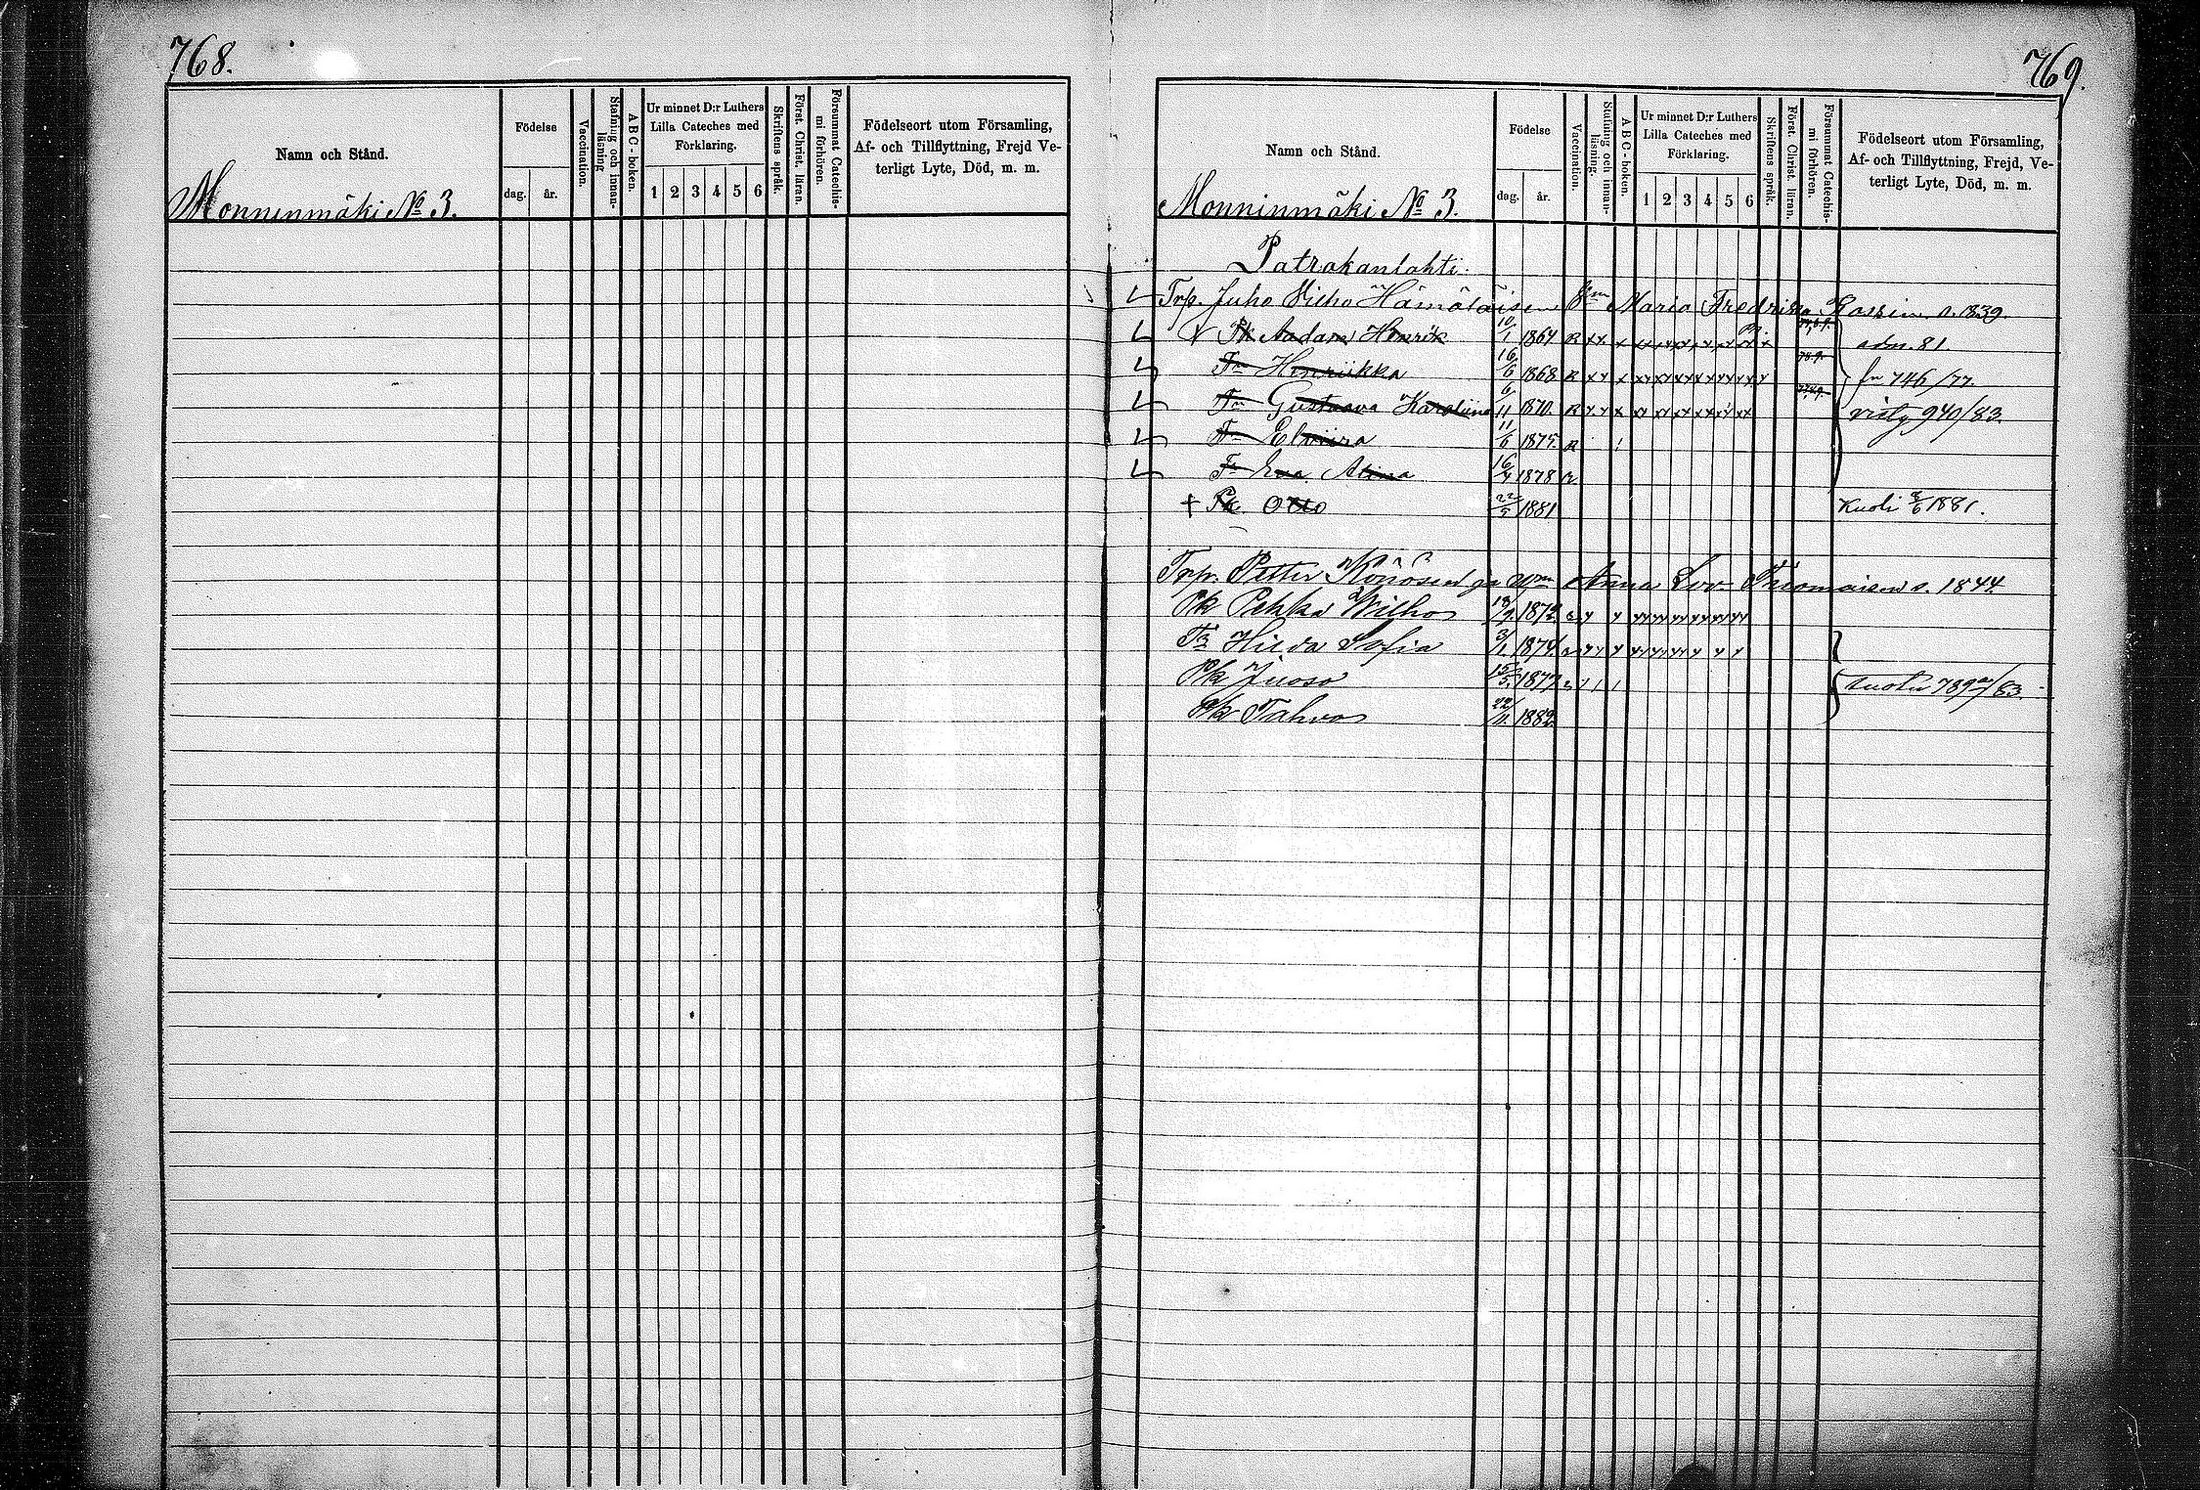 768.
Namn och Stånd.
Födelse
dag. år.
Vaccination.
Stafning och innan-
läsning
ABC-boken.
Ur minnet D:r Luthers
Lilla Cateches med
Förklaring.
1 2 3 4 5 6
Skriftens språk.
Först. Christ. läran.
Försummat Catechis-
mi förhören.
Födelseort utom Församling,
Af- och Tillflyttning, Frejd Ve-
terligt Lyte, Död, m. m.
Monninmäki No 3.
769.
Namn och Stånd.
Födelse
dag. år.
Vaccination.
Stafning och innan-
läsning.
ABC-boken.
Ur minnet D:r Luthers
Lilla Cateches med
Förklaring.
1 2 3 4 5 6
Skriftens språk.
Först. Christ. läran.
Försummat Catechis-
mi förhören.
Födelseort utom Församling,
Af- och Tillflyttning, Frejd, Ve-
terligt Lyte, Död, m. m.
Monninmäki No 3.
Patrakanlahti.
Trp. Juho Vilho Hämäläisen Maria Fredrika s. 1839.
Pk Aadam Henrik 10/1 1864 R adm. 81.
Tr Henriikka 16/6 1868 R fr 746/77.
Tr Gustaava Karoliina 6/11 1870. R 940/83.
Tr Elviira 11/6 1875. R
Tr Eva Alina 16/4 1878 R
† Pk. Otto 22/5 1881 Kuoli 1881.
Trp. Petter Könösen ja Anna s. 1844.
Pk Pekka Wilho 1872
Tr Hilda Sofia 1874.
Pk Juoso 15/5 1877 789/83
Pk Tahvo 22/11 1882